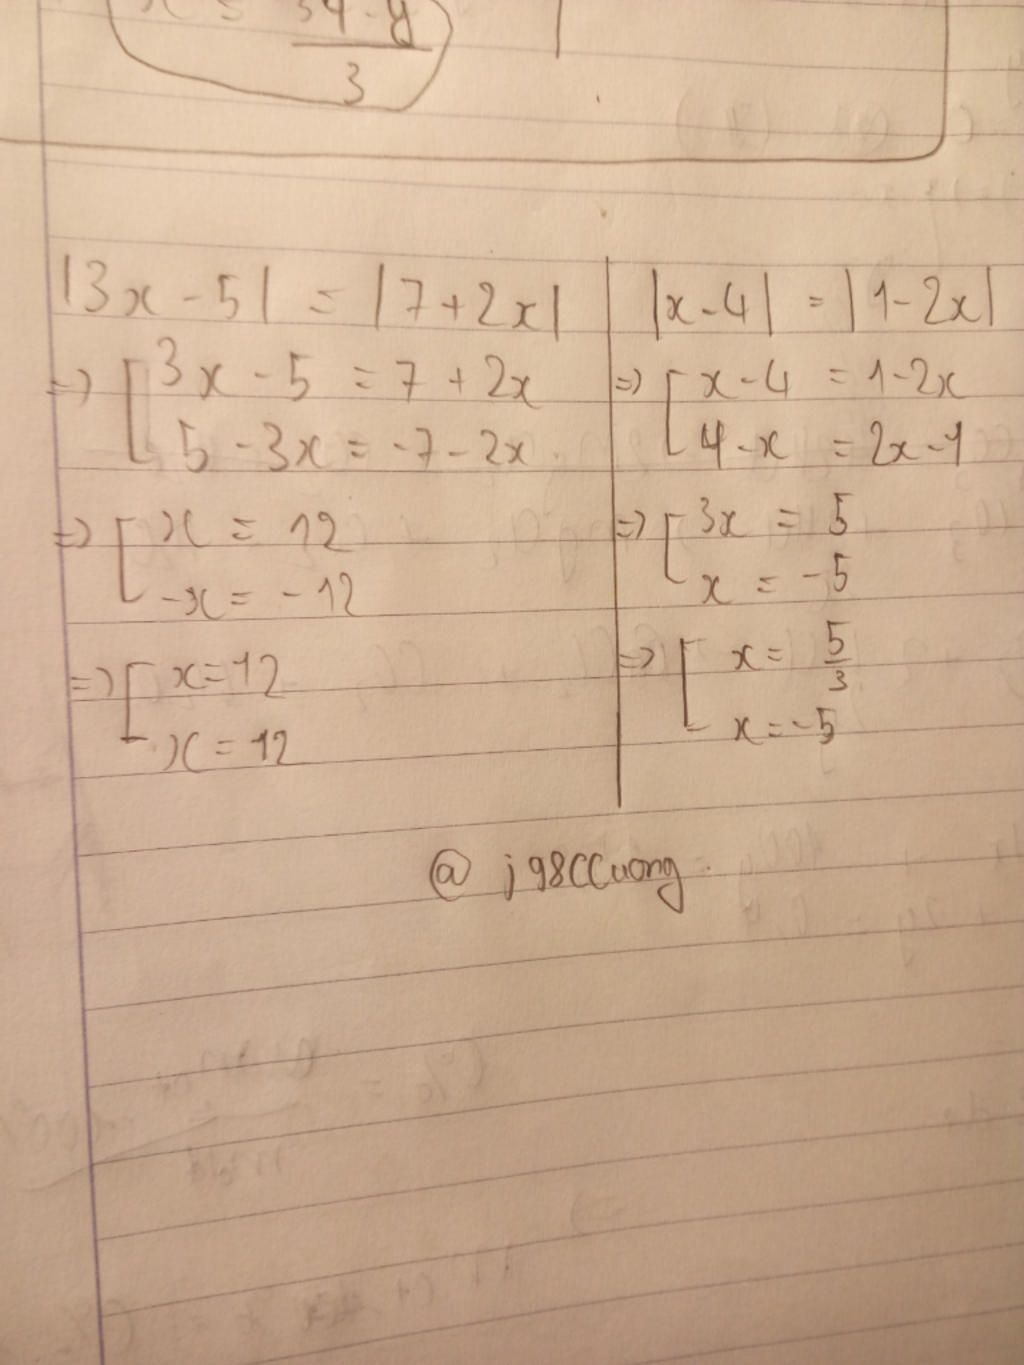 3
|3x - 5| = |7 + 2x|
=> [ 3x - 5 = 7 + 2x
5 - 3x = -7 - 2x
=> [ x = 12
-x = -12
=> [ x = 12
x = 12
|x - 4| = |1 - 2x|
=> [ x - 4 = 1 - 2x
4 - x = 2x - 1
=> [ 3x = 5
x = -5
=> [ x = 5/3
x = -5
@ j98CCuong.